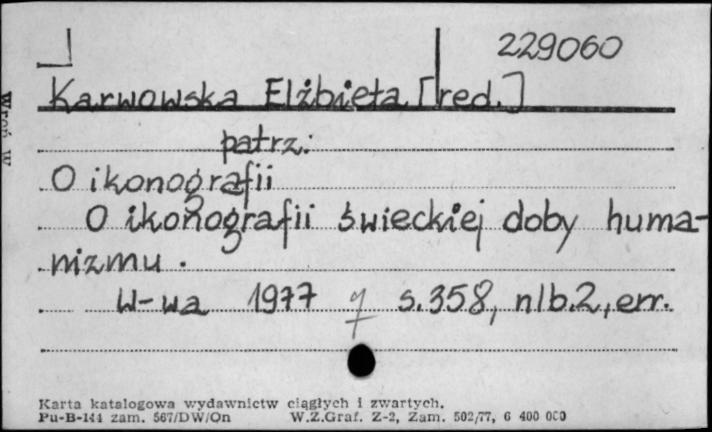 229060
Karwowska Elżbieta [red.]
patrz:
O ikonografii
O ikonografii świeckiej doby huma-
nizmu.
W-wa 1977 s.358, nlb.2, err.
Karta katalogowa wydawnictw ciągłych i zwartych.
Pu-B-144 zam. 567/DW/On W.Z.Graf. Z-2, Zam. 502/77, 6 400 000